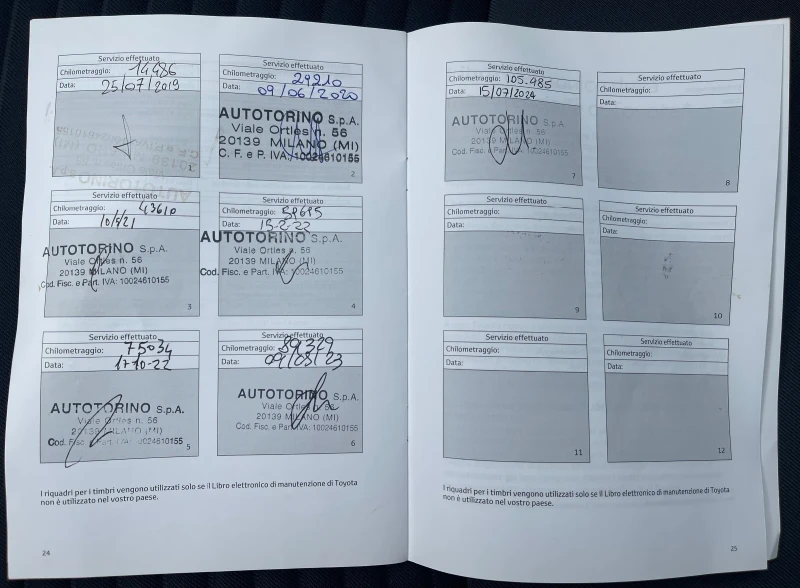 Servizio effettuato
Chilometraggio: 14486
Data: 25/07/2019
1
Servizio effettuato
Chilometraggio: 29210
Data: 09/06/2020
AUTOTORINO S.p.A.
Viale Ortles n. 56
20139 MILANO (MI)
C. F. e P. IVA: 10024610155
2
Servizio effettuato
Chilometraggio: 43610
Data: 10/5/21
AUTOTORINO S.p.A.
Viale Ortles n. 56
20139 MILANO (MI)
Cod. Fisc. e Part. IVA: 10024610155
3
Servizio effettuato
Chilometraggio:
Data: 15-2-22
AUTOTORINO S.p.A.
Viale Ortles n. 56
20139 MILANO (MI)
Cod. Fisc. e Part. IVA: 10024610155
4
Servizio effettuato
Chilometraggio: 75034
Data: 17-10-22
AUTOTORINO S.p.A.
Viale Ortles n. 56
20139 MILANO (MI)
Cod. Fisc. e Part. IVA: 10024610155
5
Servizio effettuato
Chilometraggio: 89329
Data: 09/03/23
AUTOTORINO S.p.A.
Viale Ortles n. 56
20139 MILANO (MI)
Cod. Fisc. e Part. IVA: 10024610155
6
I riquadri per i timbri vengono utilizzati solo se il Libro elettronico di manutenzione di Toyota
non è utilizzato nel vostro paese.
24
Servizio effettuato
Chilometraggio: 105.985
Data: 15/07/2024
AUTOTORINO S.p.A.
Viale Ortles n. 56
20139 MILANO (MI)
Cod. Fisc. e Part. IVA: 10024610155
7
Servizio effettuato
Chilometraggio:
Data:
8
Servizio effettuato
Chilometraggio:
Data:
9
Servizio effettuato
Chilometraggio:
Data:
10
Servizio effettuato
Chilometraggio:
Data:
11
Servizio effettuato
Chilometraggio:
Data:
12
I riquadri per i timbri vengono utilizzati solo se il Libro elettronico di manutenzione di Toyota
non è utilizzato nel vostro paese.
25